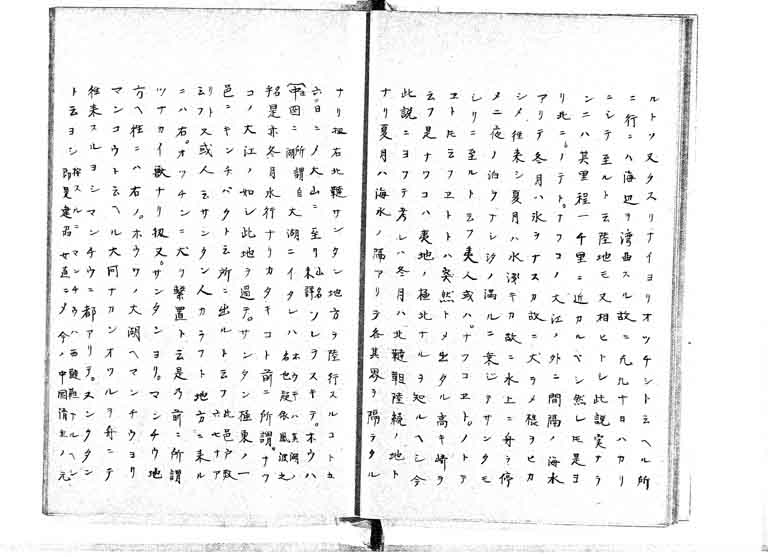 ルトソ又タスリナイヨリオツチシトヱヘル所
ニ行ニハ海辺ヲ湾西スル故ニ凢九十日ハカリ
ニシテ至ルト云陸地モ又相ヒトシ此説実ナラ
ンニハ其里程一千里ニ近カルベシ然レモ是ヨ
リ北ニノテトナフコノ大江ノ外ニ間隔ノ海水
アリテ冬月ハ氷ヲナスカ故ニ犬ヲメ橇ヲヒカ
シメ往来シ夏月ハ水深キカ故ニ水上ニ舟ヲ停
メニ夜ノ泊ヲナシ汐ノ満ルニ乗シテサンタモ
シリニ至ルト云フ夷人或ハナフコヱトノトテ
ヱトヒ云フヱトトハ突然トメ出タル高キ崎ヲ
云フ是ナワコハ夷地ノ極北ナルヲ知ルヘシ今
此説ニヨフテ考レハ冬月ハ北韃靼陸続ノ地ト
ナリ夏月ハ海水ノ隔アリテ各其界ヲ隔ラタル
ナリ扨右北韃サンタン地方ヲ陸行スルコト五
六日ニノ大山ニ至リ山名未詳ソレヲスキテホウハ
中国ニ所謂大湖ニイタレハ
是亦冬月氷行ナリカタキコト前ニ所謂ナフ
コノ大江ノ如レ此地ヲ過テサンタン極東ノ一
邑ニキンチバクト云所ニ出ルト云フ此邑戸数六七ナア
リトス或人云サンタン人カラフト地方ニ来ル
ニハ右オツチンニ犬ヲ繋置ト云是乃前ニ所謂
ツナカイ獣ナリ扨又サンタンヨリマンチウ地
方ヘ往ニハ右ノホウワノ大湖ヘマンチウヨリ
マンコウト云ヘル大河ナカシオワルヲ舟ニテ
往来スルヨシマンチウニ都アリテスンクタン
ト云ヨシ按スルニマンチウハ西韃靼ナルヘシ即是建国女直ニメ今ノ中国清主ノ元